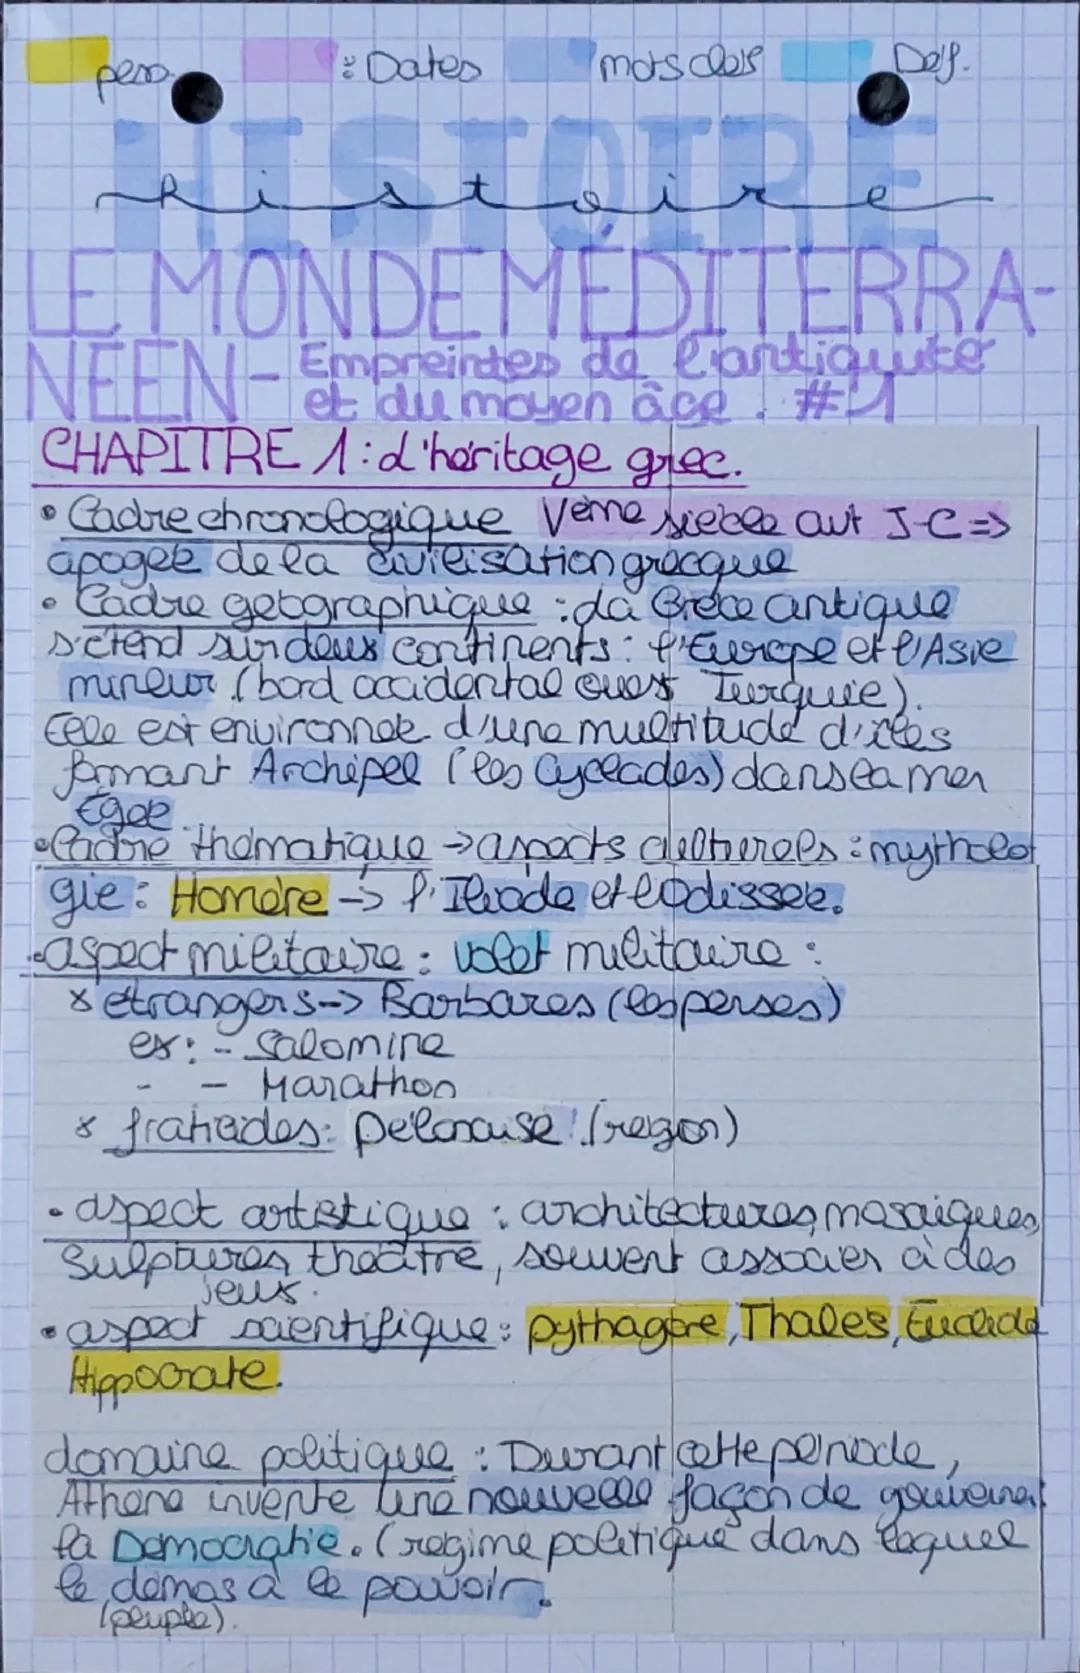 perso : Dates mots clés Déf.
HISTOIRE
histoire
LE MONDE MÉDITERRA-
NÉEN - Empreintes de l'antiquité
et du moyen âge. #1
CHAPITRE 1 : L'héritage grec.
• Cadre chronologique Veme siècle avt J-C =>
apogée de la civilisation grecque
• Cadre géographique : La Grèce antique
s'étend sur deux continents : l'Europe et l'Asie
mineur (bord occidental ouest Turquie).
Elle est environnée d'une multitude d'îles
formant Archipel (les Cyclades) dans la mer
Égée.
• Cadre thématique -> aspects culturels : mytholo
gie : Homère -> l'Iliade et l'Odissée.
- aspect militaire : volet militaire :
x étrangers --> Barbares (les perses)
ex : - Salamine
- - Marathon
x fratricides : (region)
• aspect artistique : architectures, mosaïques,
Sulptures, théâtre, souvent associer à des
jeux.
• aspect scientifique : pythagore, Thales, Euclide
Hippocrate.
domaine politique : Durant cette période,
Athène invente une nouvelle façon de gouverner
la Démocratie. (régime politique dans lequel
le démos a le pouvoir.
(peuple).